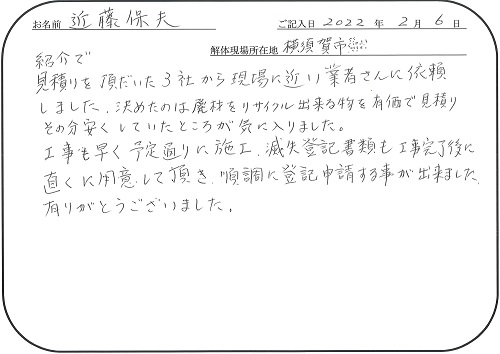 お名前 近藤保夫 ご記入日 2022 年 2 月 6 日
解体現場所在地 横須賀市
紹介で
見積りを頂だいた3社から現場に近い業者さんに依頼
しました、決めたのは廃材をリサイクル出来る物を有価で見積り
その分安くしていたところが気に入りました。
工事も早く予定通りに施工、滅失登記書類も工事完了後に
直くに用意して頂き、順調に登記申請する事が出来ました、
有りがとうございました。